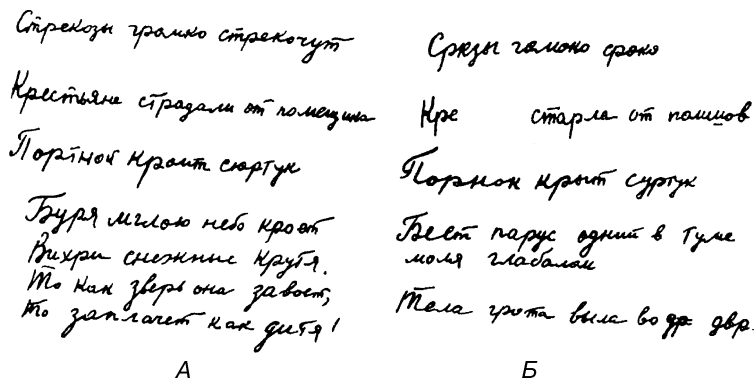 Стрекозы громко стрекочут
Крестьяне страдали от помещика
Портной кроит сюртук
Буря мглою небо кроет
Вихри снежные крутя.
То как зверь она завоет,
то заплачет как дитя!
А
Срезы гомоко сроко
Кре старла от помшов
Порнон крыт суртук
Бест парус одний в туме
моля глабалом
Тела грота выла во др двр.
Б